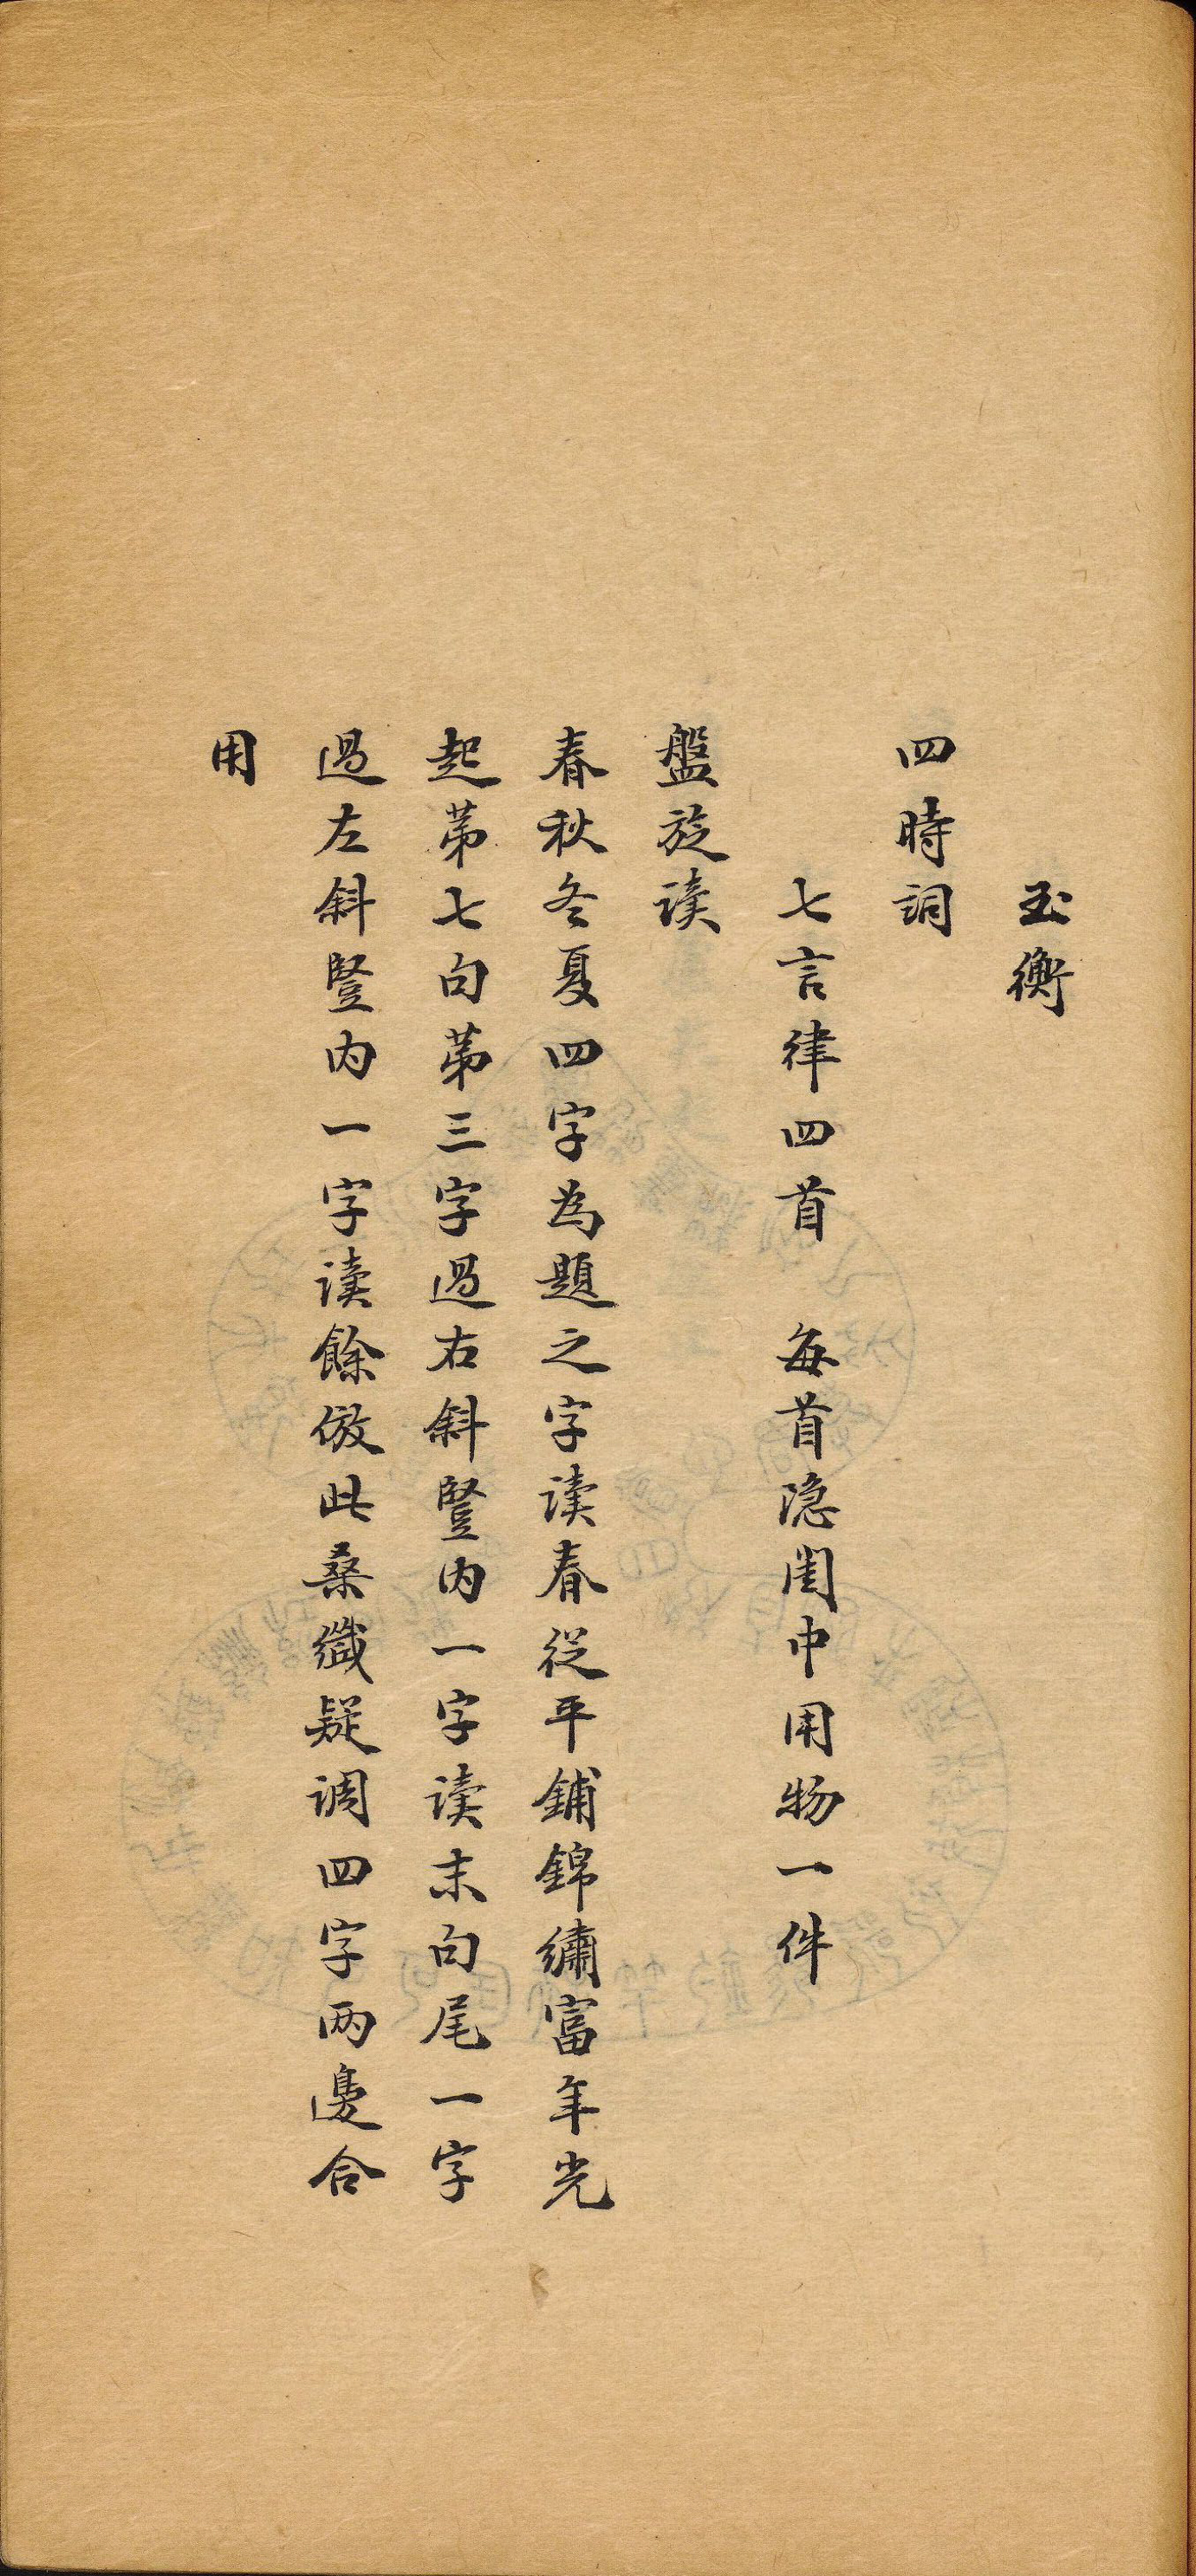 玉衡
四時詞
七言律四首　每首隐閨中用物一件
盤旋读
春秋冬夏四字為題之字读春從平鋪錦繡富年光
起苐七句苐三字過右斜豎内一字读末句尾一字
過左斜豎内一字读餘倣此桑纖疑调四字两邊合
用